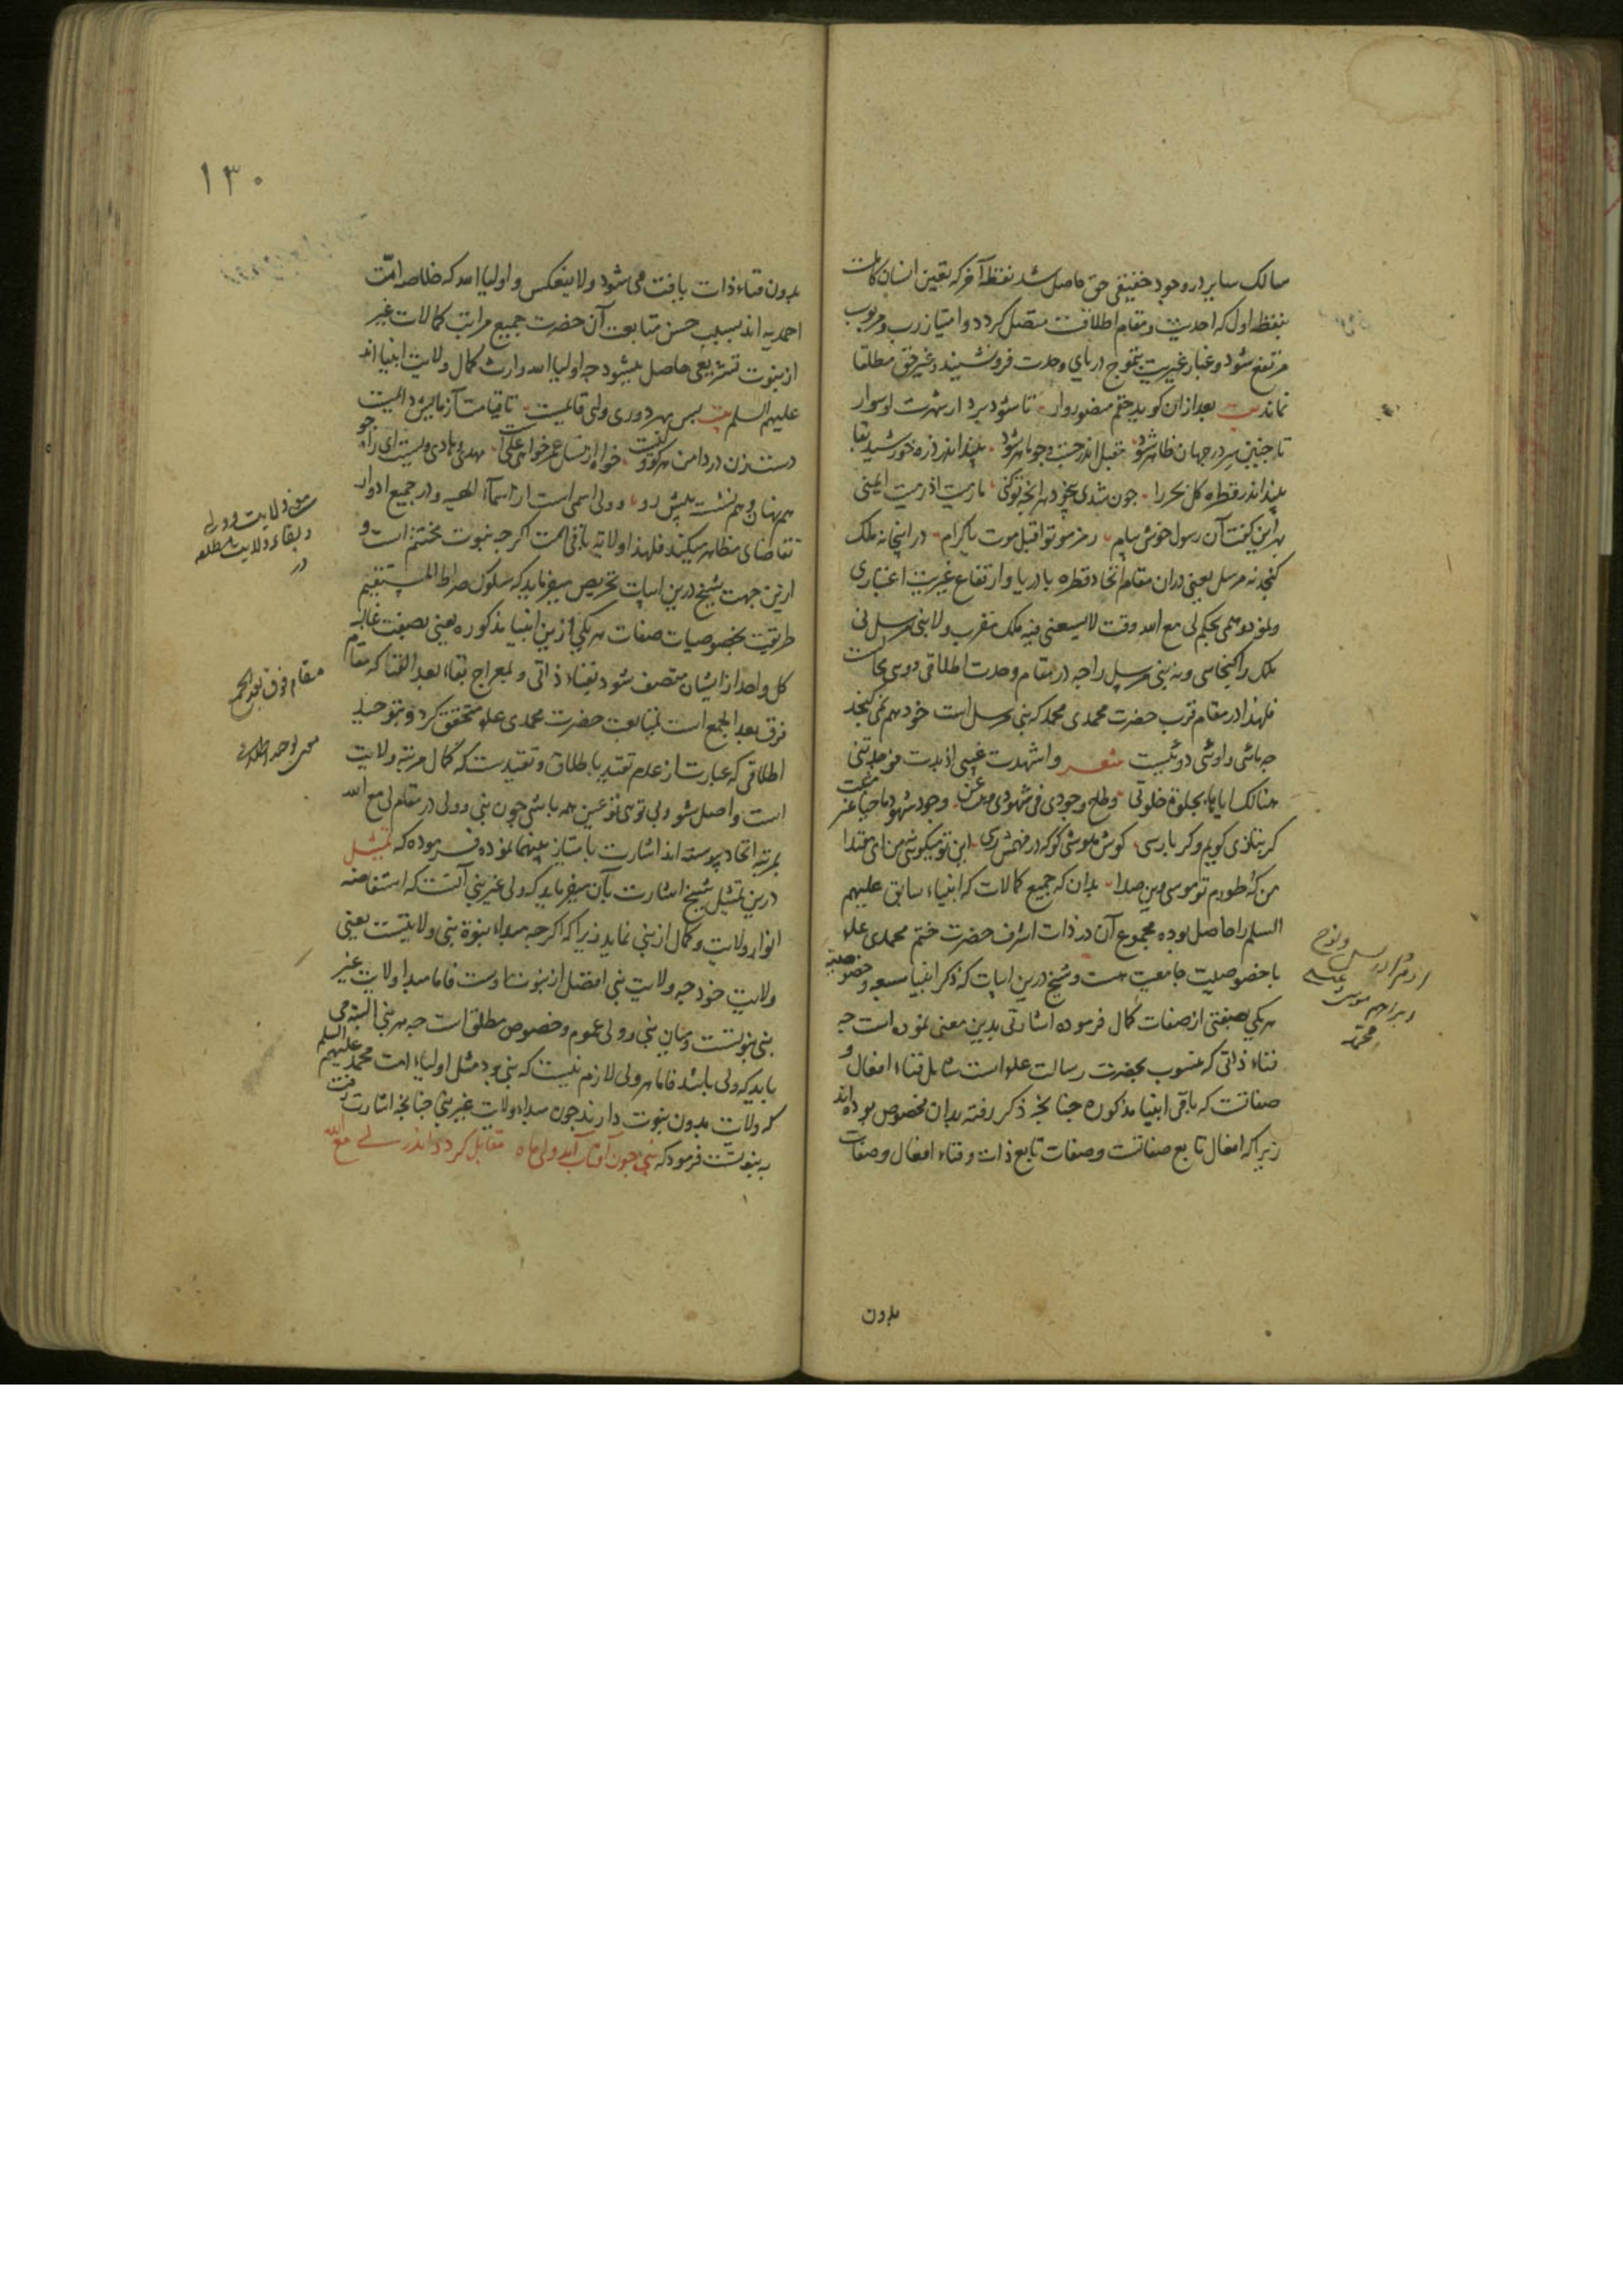 سالک سایر در وجود حقیقی حق حاصل شد نقطه آخر که تعین انسان کاملست
بنقطه اول که احدیت و مقام اطلاقست متصل کردد و امتیاز رب و مربوب
مرتفع شود و غبار غیریت بتموج دریای وحدت فرونشیند و غیر حق مطلقا
نماند بیت بعد ازان کوید حقم منصوروار تا شود بردار شهرت او سوار
تا جنین سر در جهان ظاهر شود مقبل اندر جست و جو ماهر شود بیند اندر ذره خورشید بقا
بیند اندر قطره کل بحر را جون شدی بیخود هر آنجه تو کنی ما رمیت اذ رمیت ایمنی
بهر این کفت آن رسول خوش پیام رمز موتوا قبل موت یا کرام در اینجا نه ملک
کنجد نه مرسل یعنی دران مقام اتحاد قطره با دریا و ارتفاع غیریت اعتباری
و نمود وهمی بحکم لی مع الله وقت لا یسعنی فیه ملک مقرب ولا نبی مرسل نی
ملک را کنجایی و نه نبی مرسل را جه در مقام وحدت اطلاقی دویی محالست
فلهذا در مقام قرب حضرت محمدی محمد که نبی مرسل است خود هم نمی کنجد
جه مائی و اوئی دوئیست شعر و اشهدت غیبی اذ بدت فوجدتنی
هنالک ایاها بجلوة خلوتی وطاح وجودی فی شهودی وبنت عن وجود شهودی ماحیا غیر مثبت
کر بتازی کویم و کر پارسی کوش هوشی کو که در فهمش رسی این تو میکوئی نه من ای مقتدا
من که طورم تو موسی وین صدا بدان که جمیع کمالات که انبیاء سابق علیهم
السلم را حاصل بوده مجموع آن در ذات اشرف حضرت ختم محمدی علم
با خصوصیت جامعیت هست و شیخ درین ابیات که ذکر انبیا سبعه و خصوصیت
هر یکی بصفتی از صفات کمال فرموده اشارتی بدین معنی نموده است جه
فناء ذاتی که منسوب بحضرت رسالت علم است شامل فناء افعال و
صفاتست که باقی انبیا مذکوره جنانجه ذکر رفته بدان مخصوص بوده اند
زیرا که افعال تابع صفاتست و صفات تابع ذات و فناء افعال و صفات
بدون
ادم ادریس و نوح
ابراهیم موسی عیسی
محمد
۱۳۰
بدون فناء ذات یافت می شود ولا ینعکس و اولیاء الله که خلاصه امت
احمدیه اند بسبب حسن متابعت آن حضرت جمیع مراتب کمالات غیر
از نبوت تشریعی حاصل میشود جه اولیاء الله وارث کمال ولایت انبیا اند
علیهم السلم بیت پس بهر دوری ولی قائمست تا قیامت آزمایش دائمست
دست زن در دامن هر کو ولیست خواه از نسل عمر خواه از علیست مهدی و هادی ویست ای راه جو
هم نهان و هم نشسته پیش رو و ولی اسمی است از اسماء الهیه و در جمیع ادوار
تقاضای مظاهر میکند فلهذا ولایت باقی است اکرجه نبوت مختتم است و
ازین جهت شیخ درین ابیات تحریص میفرماید که سلوک صراط المستقیم
طریقت بخصوصیات صفات هر یکی ازین انبیا مذکوره یعنی بصفت غالبه
کل واحد از ایشان متصف شود بفناء ذاتی و بمعراج بقاء بعد الفنا که مقام
فرق بعد الجمع است بمتابعت حضرت محمدی علم متحقق کردد و بتوحید
اطلاقی که عبارت از عدم تقید باطلاق و تقیدست که کمال مرتبه ولایت
است واصل شود و بی توئی تو عین همه باشی چون نبی و ولی در مقام لی مع الله
بمرتبه اتحاد پیوسته اند اشارت بامتیاز بینهما نموده فرموده که تمثیل
درین تمثیل شیخ اشارت بآن میفرماید که ولی غیر نبی آنست که استفاضه
انوار ولایت و کمال از نبی نماید زیرا که اکرجه مبداء نبوة نبی ولایتست یعنی
ولایت خود جه ولایت نبی افضل از نبوت اوست فاما مبدا ولایت غیر
نبی نبوتست و میان نبی و ولی عموم و خصوص مطلق است جه هر نبی البته می
باید که ولی باشد فاما هر ولی لازم نیست که نبی بود مثل اولیاء امت محمد علیهم السلم
که ولایت بدون نبوت دارند جون مبداء ولایت غیر نبی جنانجه اشارت رفت
به نبوتست فرمود که نبی جون آفتاب آمد ولی ماه مقابل کردد اندر لی مع الله
و بقاء ولایت مطلقه
مقام فرق بعد الجمع
معنی توحید اطلاقی